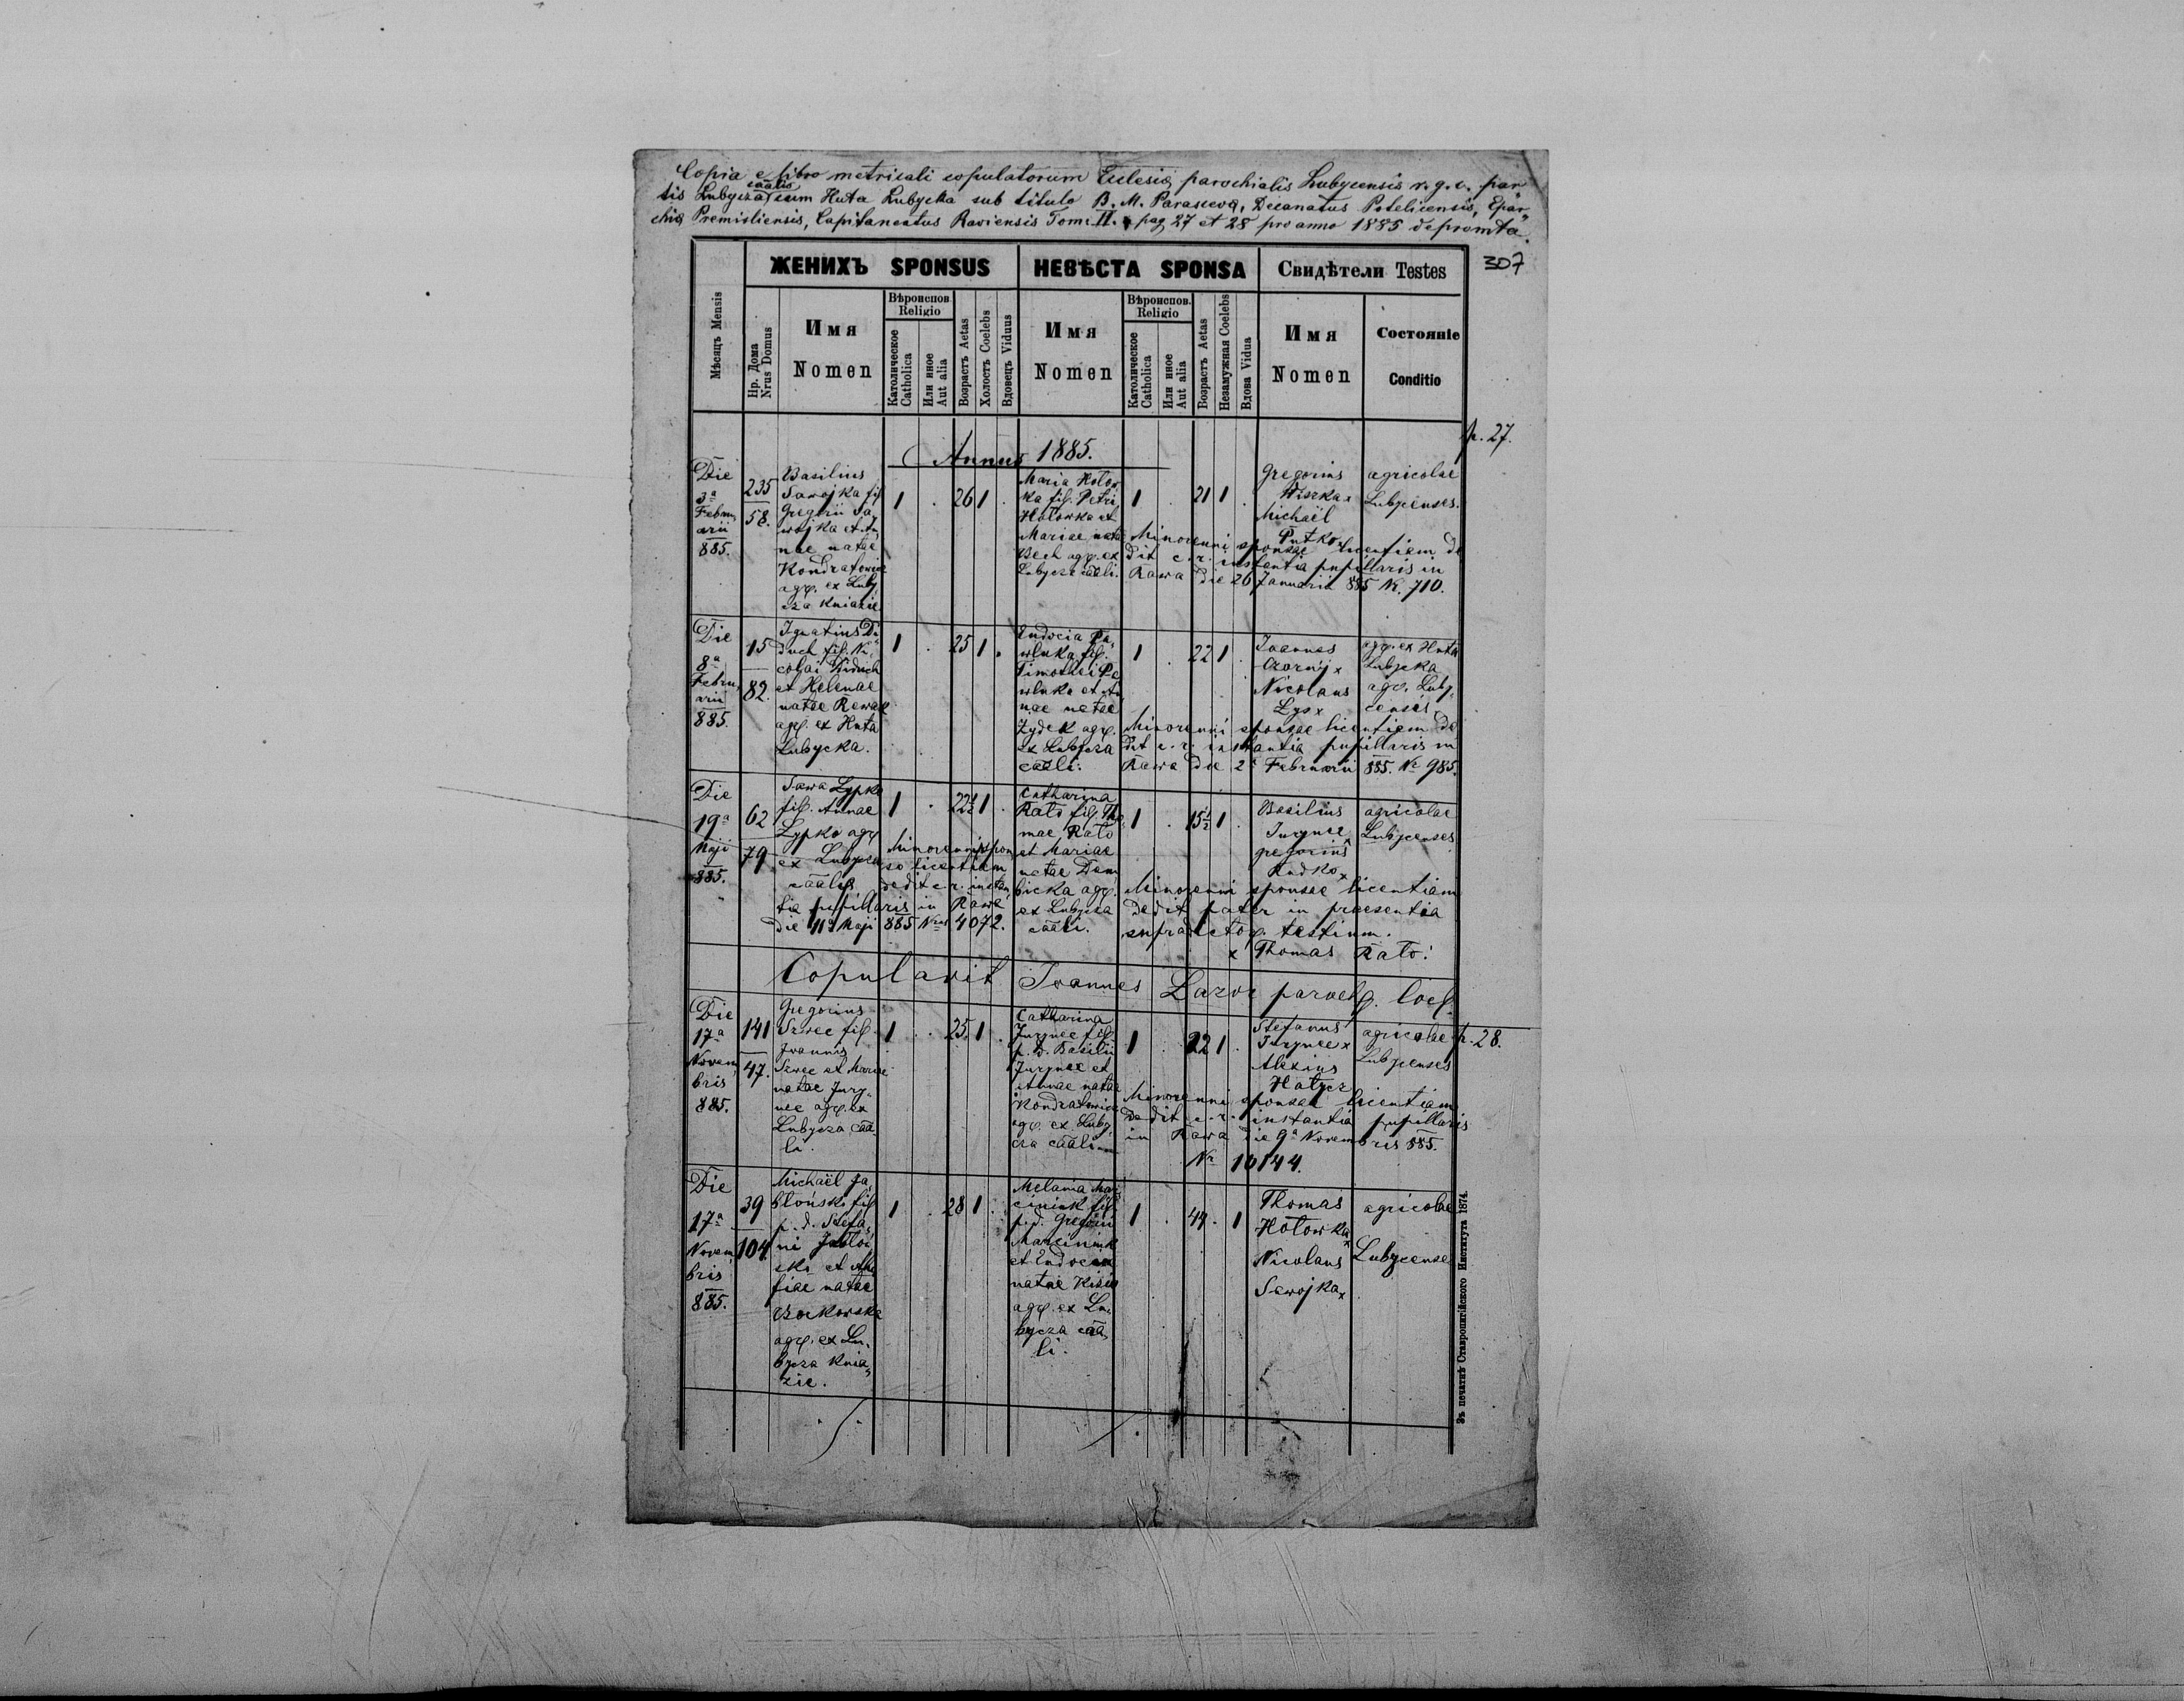 Copia e libro metricali copulatorum Eclesię parochialis Lubycensis r. g. c. par„
tis Lubycza caalis cum Huta Lubycka sub titulo B. M. Parasceva, Decanatus Potelicensis, Epar„
chię Premisliensis, Capitaneatus Raviensis Tomi II. pag 27 et 28 pro anno 1885 depromta.
307
ЖЕНИХЪ SPONSUS
НЕВѢСТА SPONSA
Свидѣтели Testes
Мѣсяцъ Mensis
Нр. Дома
Nrus Domus
Имя
Nomen
Вѣроиспов.
Religio
Католическое
Catholica
Или иное
Aut alia
Возрастъ Aetas
Холостъ Coelebs
Вдовецъ Viduus
Имя
Nomen
Вѣроиспов.
Religio
Католическое
Catholica
Или иное
Aut alia
Возрастъ Aetas
Незамужная Coelebs
Вдова Vidua
Имя
Nomen
Состояніе
Conditio
p. 27.
Annus 1885.
Die
3ª
Febru„
arii
885.
235
58.
Basilius
Sawojka fil.
Gregorii Sa„
wojka et An„
nae natae
Kondratowicz
agr. ex Luby„
cza Kniazie
1 . 26 1 .
Maria Hołow„
ka fil. Petri
Hołowka et
Mariae natae
Bech agr. ex
Lubycza caali.
1 . 21 1 .
Gregorius
x
Michaël
Putko
agricolae
Lubycenses.
Minorenni sponsae licentiam de
dit c. r. instantia pupillaris in
Rawa die 26 Januarii 885 Nr. 710.
Die
8ª
Febru„
arii
885.
15
82.
Ignatius Di„
duch fil. Ni„
colai Diduch
et Helenae
natae Rewak
agr. ex Huta
Lubycka.
1 . 25 1 .
Eudocia Pa„
wluka fil.
Timothei Pa
wluka et An
nae natae
Zydek agr.
ex Lubycza
caali.
1 . 22 1 .
Joannes
Czornij x
Nicolaus
Lys x
agr. ex Huta
Lubycka
agr. Luby„
censis
Minorenni sponsae licentiam de
dit c. r. instantia pupillaris in
Rawa die 2ª Februarii 885. Nr 985.
Die
19ª
Maji
885.
62
79
Sawa Lypko
fil. Annae
Lypko agr.
ex Lubycza
caalis
1 . 22½ 1 .
Minorenni spon
so licentiam
dedit c. r. instan
tia pupillaris in Rawa
die 11ª Maji 885 Nrus 4072.
Catharina
Rato fil. Tho„
mae Rato
et Mariae
natae Dem
bicka agr.
ex Lubycza
caali.
1 . 15½ 1 .
Basilius
Jurynec
x
Gregorius
Rudko x
agricolae
Lubycenses
Minorenni sponsae licentiam
dedit pater in praesentia
supradictor. testium.
x Thomas Rato.
Copulavit Joannes Lazor paroch. loci.
Die
17ª
Novem„
bris
885.
141
47.
Gregorius
Szwec fil.
Joannis
Szwec et Mariae
natae Jury„
nec agr. ex
Lubycza caa„
li.
1 . 25 1 .
Catharina
Jurynec fil.
p. d. Basilii
Jurynec et
Annae natae
Kondratowicz
agr. ex Luby„
cza caali
1 . 22 1 .
Stefanus
Jurynec x
Alexius
Hałycz
agricolae
Lubycenses
p. 28.
Minorenni sponsae licentiam
dedit c. r. instantia pupillaris
in Rawa die 9ª Novembris 885.
Nr 10144.
Die
17ª
Novem„
bris
885.
39
104
Michaël Ja„
błoński fil.
p. d. Stefa„
ni Jabłoń
ski et
natae
agr. ex Lu„
bycza Knia„
zie.
1 . 28 1 .
Melania Mar„
ciniuk fil.
p. d. Gregorii
Marciniuk
et Eudociae
natae Kisio
agr. ex Lu„
bycza caa„
li.
1 . 44 . 1
Thomas
Hołowka
x
Nicolaus
Sawojka x
agricolae
Lubycenses
Зъ печатнѣ Ставропигійского Института 1874.